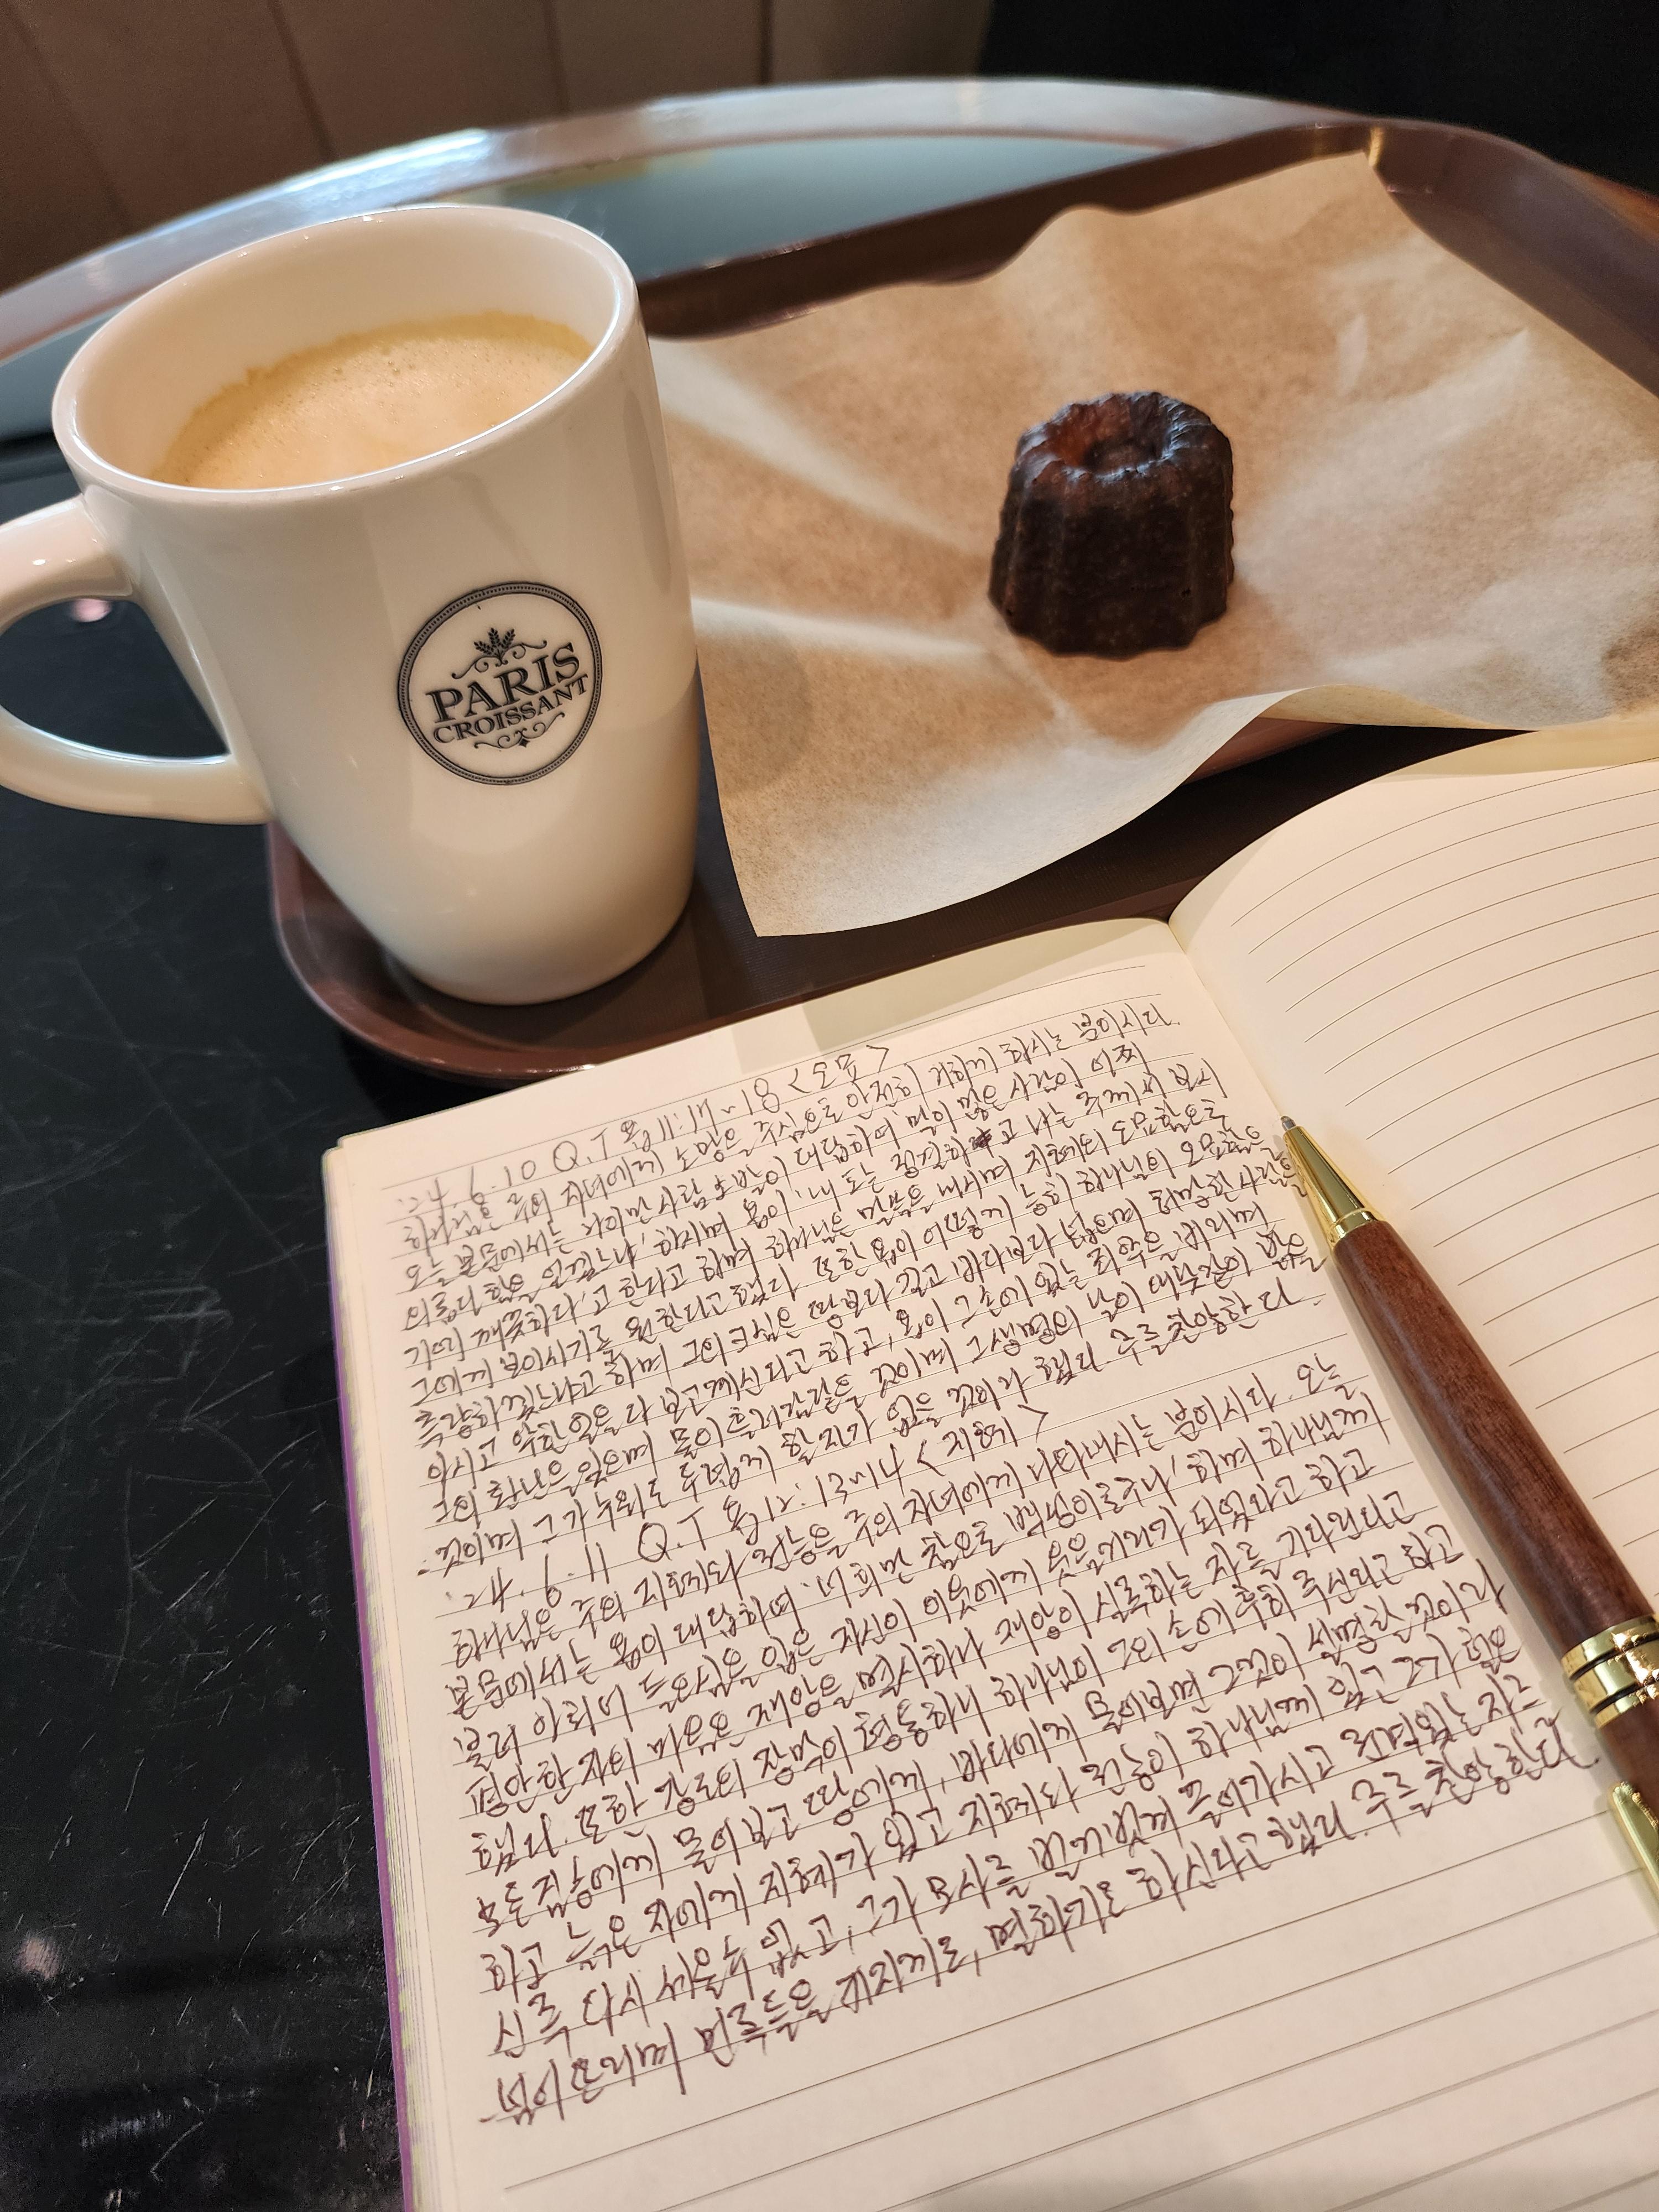 PARIS
CROISSANT
24.6.10 Q.T 욥11:17~18 <소망>
하나님은 주의 자녀에게 소망을 주심으로 안전히 거하게 하시는 분이시다.
오늘 본문에서는 나아만 사람 소발이 대답하여 '말이 많은 사람이 어찌
의롭다 함을 얻겠느냐' 하시며 욥이 '내 도는 정결하고 나는 주께서 보시
기에 깨끗하다'고 한다고 하며 하나님은 말씀을 내시며 지혜의 오묘함으로
그에게 보이시기를 원한다고 했다. 또한 욥이 어떻게 능히 하나님의 오묘함을
측량하겠느냐고 하며 그의 크심은 땅보다 길고 바다보다 넓으며 허망한 사람을
아시고 악한 일을 다 보고 계신다고 하고, 욥이 그 손에 있는 죄악을 버리며
그의 환난을 잊으며 물이 흘러감같을 것이며 그 생명의 날이 대낮보다 밝을
것이며 그가 누워도 두렵게 할 자가 없을 것이라 했다. 주를 찬양한다.
24.6.11 Q.T 욥12:13~14 <지혜>
하나님은 주의 지혜와 권능을 주의 자녀에게 나타내시는 분이시다. 오늘
본문에서는 욥이 대답하여 '너희만 참으로 백성이로구나' 하며 하나님께
불러 아뢰어 들으심을 입은 자신이 이웃에게 웃음거리가 되었다고 하고
평안한 자의 마음은 재앙을 멸시하나 재앙이 실족하는 자를 기다린다고
했다. 또한 강도의 장막이 형통하니 하나님이 그의 손에 후히 주신다고 하고
모든 짐승에게 물어보고 땅에게, 바다에게 물어보면 그것이 설명할 것이라
하고 늙은 자에게 지혜가 있고 지혜와 권능이 하나님께 있고 그가 헐은
신즉 다시 세울 수 없고, 그가 모사를 벌거벗겨 끌어가시고 권력있는 자를
넘어뜨리며 민족들을 커지게도, 멸하기도 하신다고 했다. 주를 찬양한다.